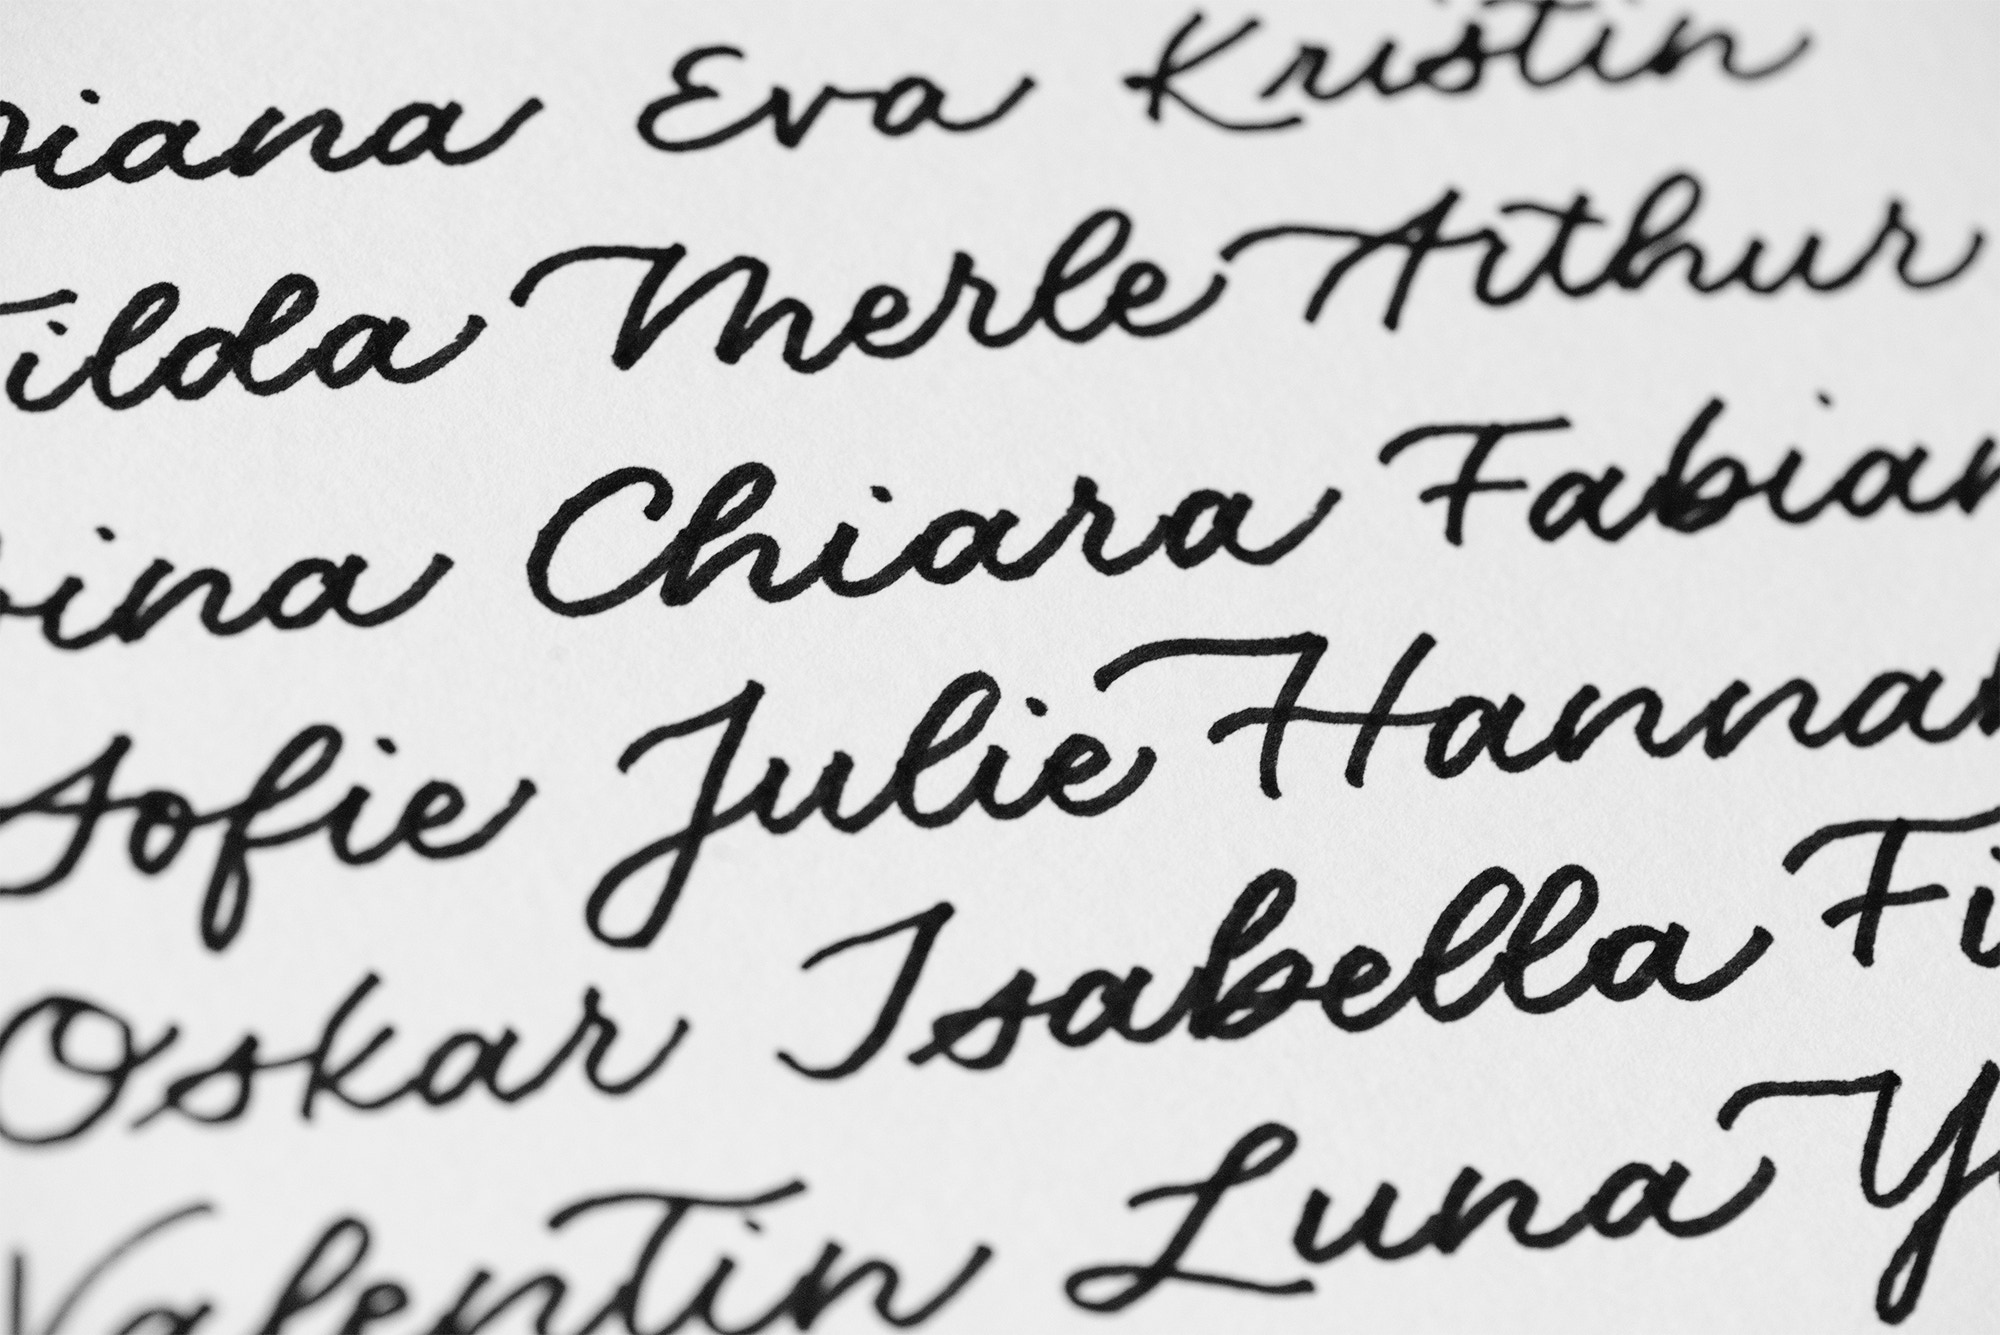 Eva Kristin
Tilda Merle Arthur
Chiara Fabian
Sofie Julie Hannah
Oskar Isabella
Valentin Luna